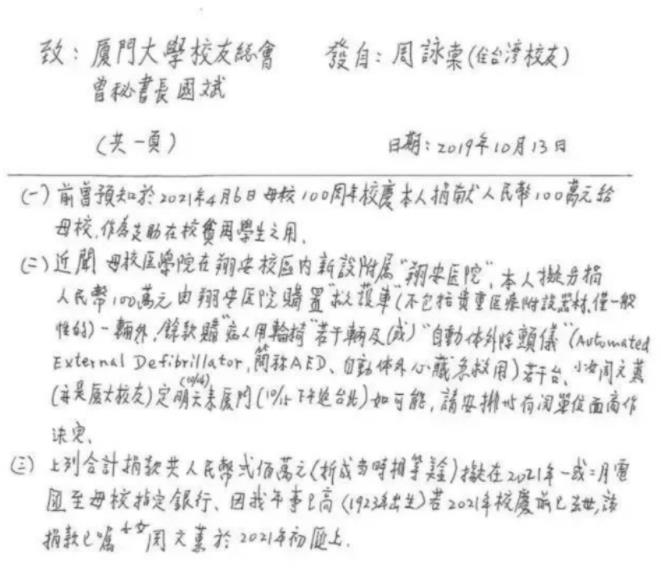 致：廈門大學校友總會 發自：周詠棠(在台湾校友)
曾秘書長國斌
(共一頁) 日期：2019年10月13日
(一)前曾預知於2021年4月6日母校100周年校慶本人捐献人民幣100萬元給
母校,作為支助在校貧困學生之用.
(二)近聞母校医學院在翔安校區内新設附屬"翔安医院",本人擬另捐
人民幣100萬元由翔安医院購置"救護車"(不包括貴重医療附設器材,僅一般
性的)一輛外,餘款購"病人用輪椅"若干輛及(或)"自動体外除顫儀"(Automated
External Defibrillator,簡称AED、自動体外心臟急救用)若干台、小女周文薰
(亦是廈大校友)定明天(10/14)来廈門(10/15下午返台北)如可能,請安排与有関單位面商作
決定、
(三)上列合計捐款共人民幣弍佰萬元(折成当時相等美金)擬在2021年一或二月電
匯至母校指定銀行、因我年事已高(1923年出生)若2021年校慶前已去世,該
捐款已嘱小女周文薰於2021年初匯上.